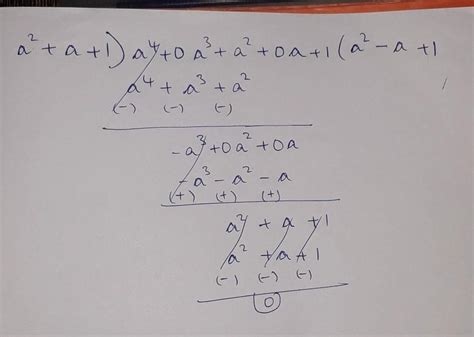 a² + a + 1) a⁴ + 0a³ + a² + 0a + 1 (a² - a + 1
a⁴ + a³ + a²
(-) (-) (-)
-a³ + 0a² + 0a
-a³ - a² - a
(+) (+) (+)
a² + a + 1
a² + a + 1
(-) (-) (-)
0